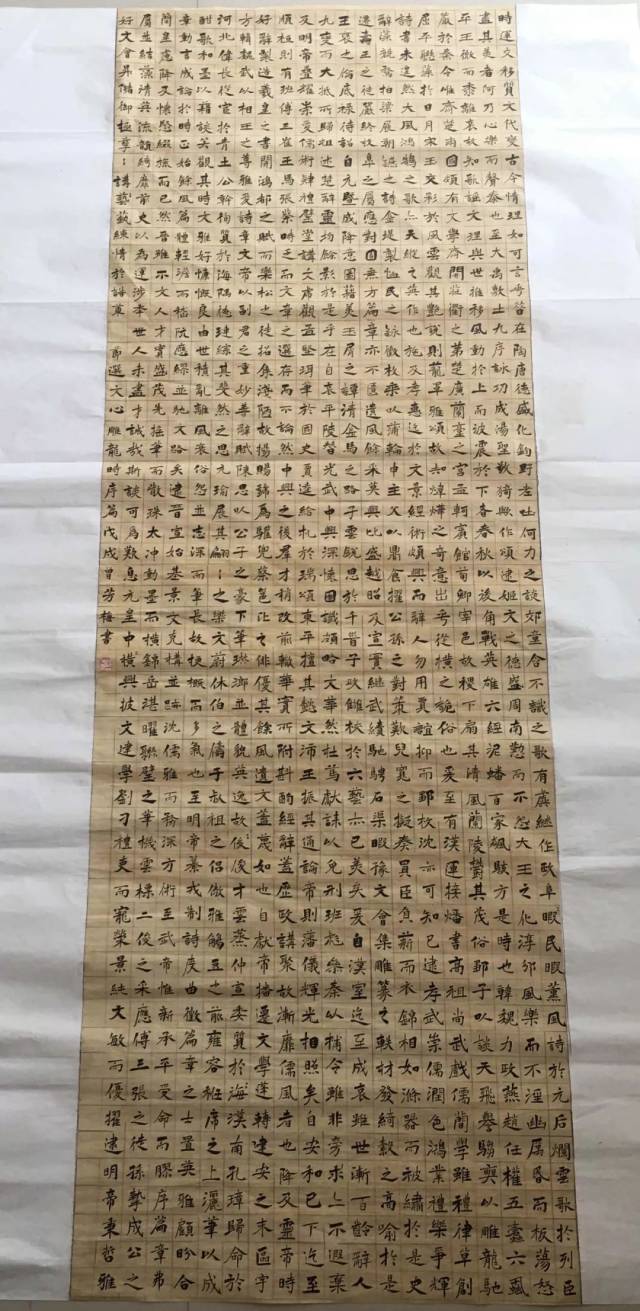 時運交移質文代變古今情理如可言乎昔在陶唐德盛化鈞野老吐何力之談郊童含不識之歌有虞繼作政阜民暇薰風詩於元后爛雲歌於列臣
盡其美者何乃心樂而聲泰也至大禹敷土九序詠功成湯聖敬猗歟作頌逮姬文之德盛周南懃而不怨大王之化淳邠風樂而不淫幽厲昏而板蕩怒
平王微而黍離哀故知歌謠文理與世推移風動於上而波震於下者春秋以後角戰英雄六經泥蟠百家飆駭方是時也韓魏力政燕趙任權五蠹六蝨
嚴於秦令唯齊楚兩國頗有文學齊開莊衢之第楚廣蘭臺之宮孟軻賓館荀卿宰邑故稷下扇其清風蘭陵鬱其茂俗鄒子以談天飛譽騶奭以雕龍馳
屈平聯藻於日月宋玉交彩於風雲觀其艷說則籠罩雅頌故知煒燁之奇意出乎從橫之詭俗也爰至有漢運接燔書高祖尚武戲儒簡學雖禮律草創
詩書未遑然大風鴻鵠之歌亦天縱之英作也施及孝惠迄於文景經術頗興而辭人勿用賈誼抑而鄒枚沈亦可知已逮孝武崇儒潤色鴻業禮樂爭輝
辭藻競騖柏梁展朝讌之詩金堤製恤民之詠徵枚乘以蒲輪申主父以鼎食擢公孫之對策歎兒寬之擬奏買臣負薪而衣錦相如滌器而被繡於是史
遷壽王之徒嚴終枚皋之屬應對固無方篇章亦不匱遺風餘采莫與比盛越昭及宣實繼武績馳騁石渠暇豫文會集雕篆之軼材發綺縠之高喻於是
王褒之倫底祿待詔自元暨成降意圖籍美玉屑之譚清金馬之路子雲銳思於千首子政讎校於六藝亦已美矣爰自漢室迄至成哀雖世漸百齡辭人
九變而大抵所歸祖述楚辭靈均餘影於是乎在自哀平陵替光武中興深懷圖讖頗略文華然杜篤獻誄以免刑班彪參奏以補令雖非旁求亦不遐棄
及明帝疊耀崇愛儒術肆禮璧堂講文虎觀孟堅珥筆於國史賈逵給札於瑞頌東平擅其懿文沛王振其通論帝則藩儀輝光相照矣自安和已下迄至
順桓則有班傅三崔王馬張蔡時之而文章之選存而不論然中興之後群才稍改前轍華實所附斟酌經辭蓋歷政講聚故漸靡儒風者也降及靈帝時
好辭製造羲皇之書開鴻都之賦而樂松之徒招集淺陋故楊賜號為驩兜蔡邕比之俳優其餘風遺文蓋蔑如也自獻帝播遷文學蓬轉建安之末區宇
方輯魏武以相王之尊雅愛詩章文帝以副君之重妙善辭賦陳思以公子之豪下筆琳瑯並體貌英逸故俊才雲蒸仲宣委質於漢南孔璋歸命於
河北偉長從宦於青土公幹徇質於海隅德璉綜其斐然之思元瑜展其翩翩之樂文蔚休伯之儔子叔祖之侶傲雅觴豆之前雍容衽席之上灑筆以成
酣歌和墨以藉談笑觀其時文雅好慷慨良由世積亂離風衰俗怨並志深而筆長故梗概而多氣也至明帝纂戎制詩度曲徵篇章之士置英雅顧盼合
章動言成論於時正始餘風篇體輕澹而嵇阮應繆並馳文路矣逮晉宣始基景文克構並跡沈儒雅而務深方術至武帝惟新承平受命而膠序篇章弗
簡皇慮降及懷愍綴旒而已然晉雖不文人才實盛茂先搖筆而散珠太沖動墨而橫錦岳湛曜聯璧之華機雲標二俊之采應傅三張之徒孫摯成公之
屬並結藻清英流韻綺靡前史以為運涉季世人未盡才誠哉斯談可為歎息元皇中興披文建學劉刁禮吏而寵榮景純文敏而優擢逮明帝秉哲雅
好文會升儲御極孳孳講藝練情於誥策 節選文心雕龍時序篇戊戌曾芳梅書